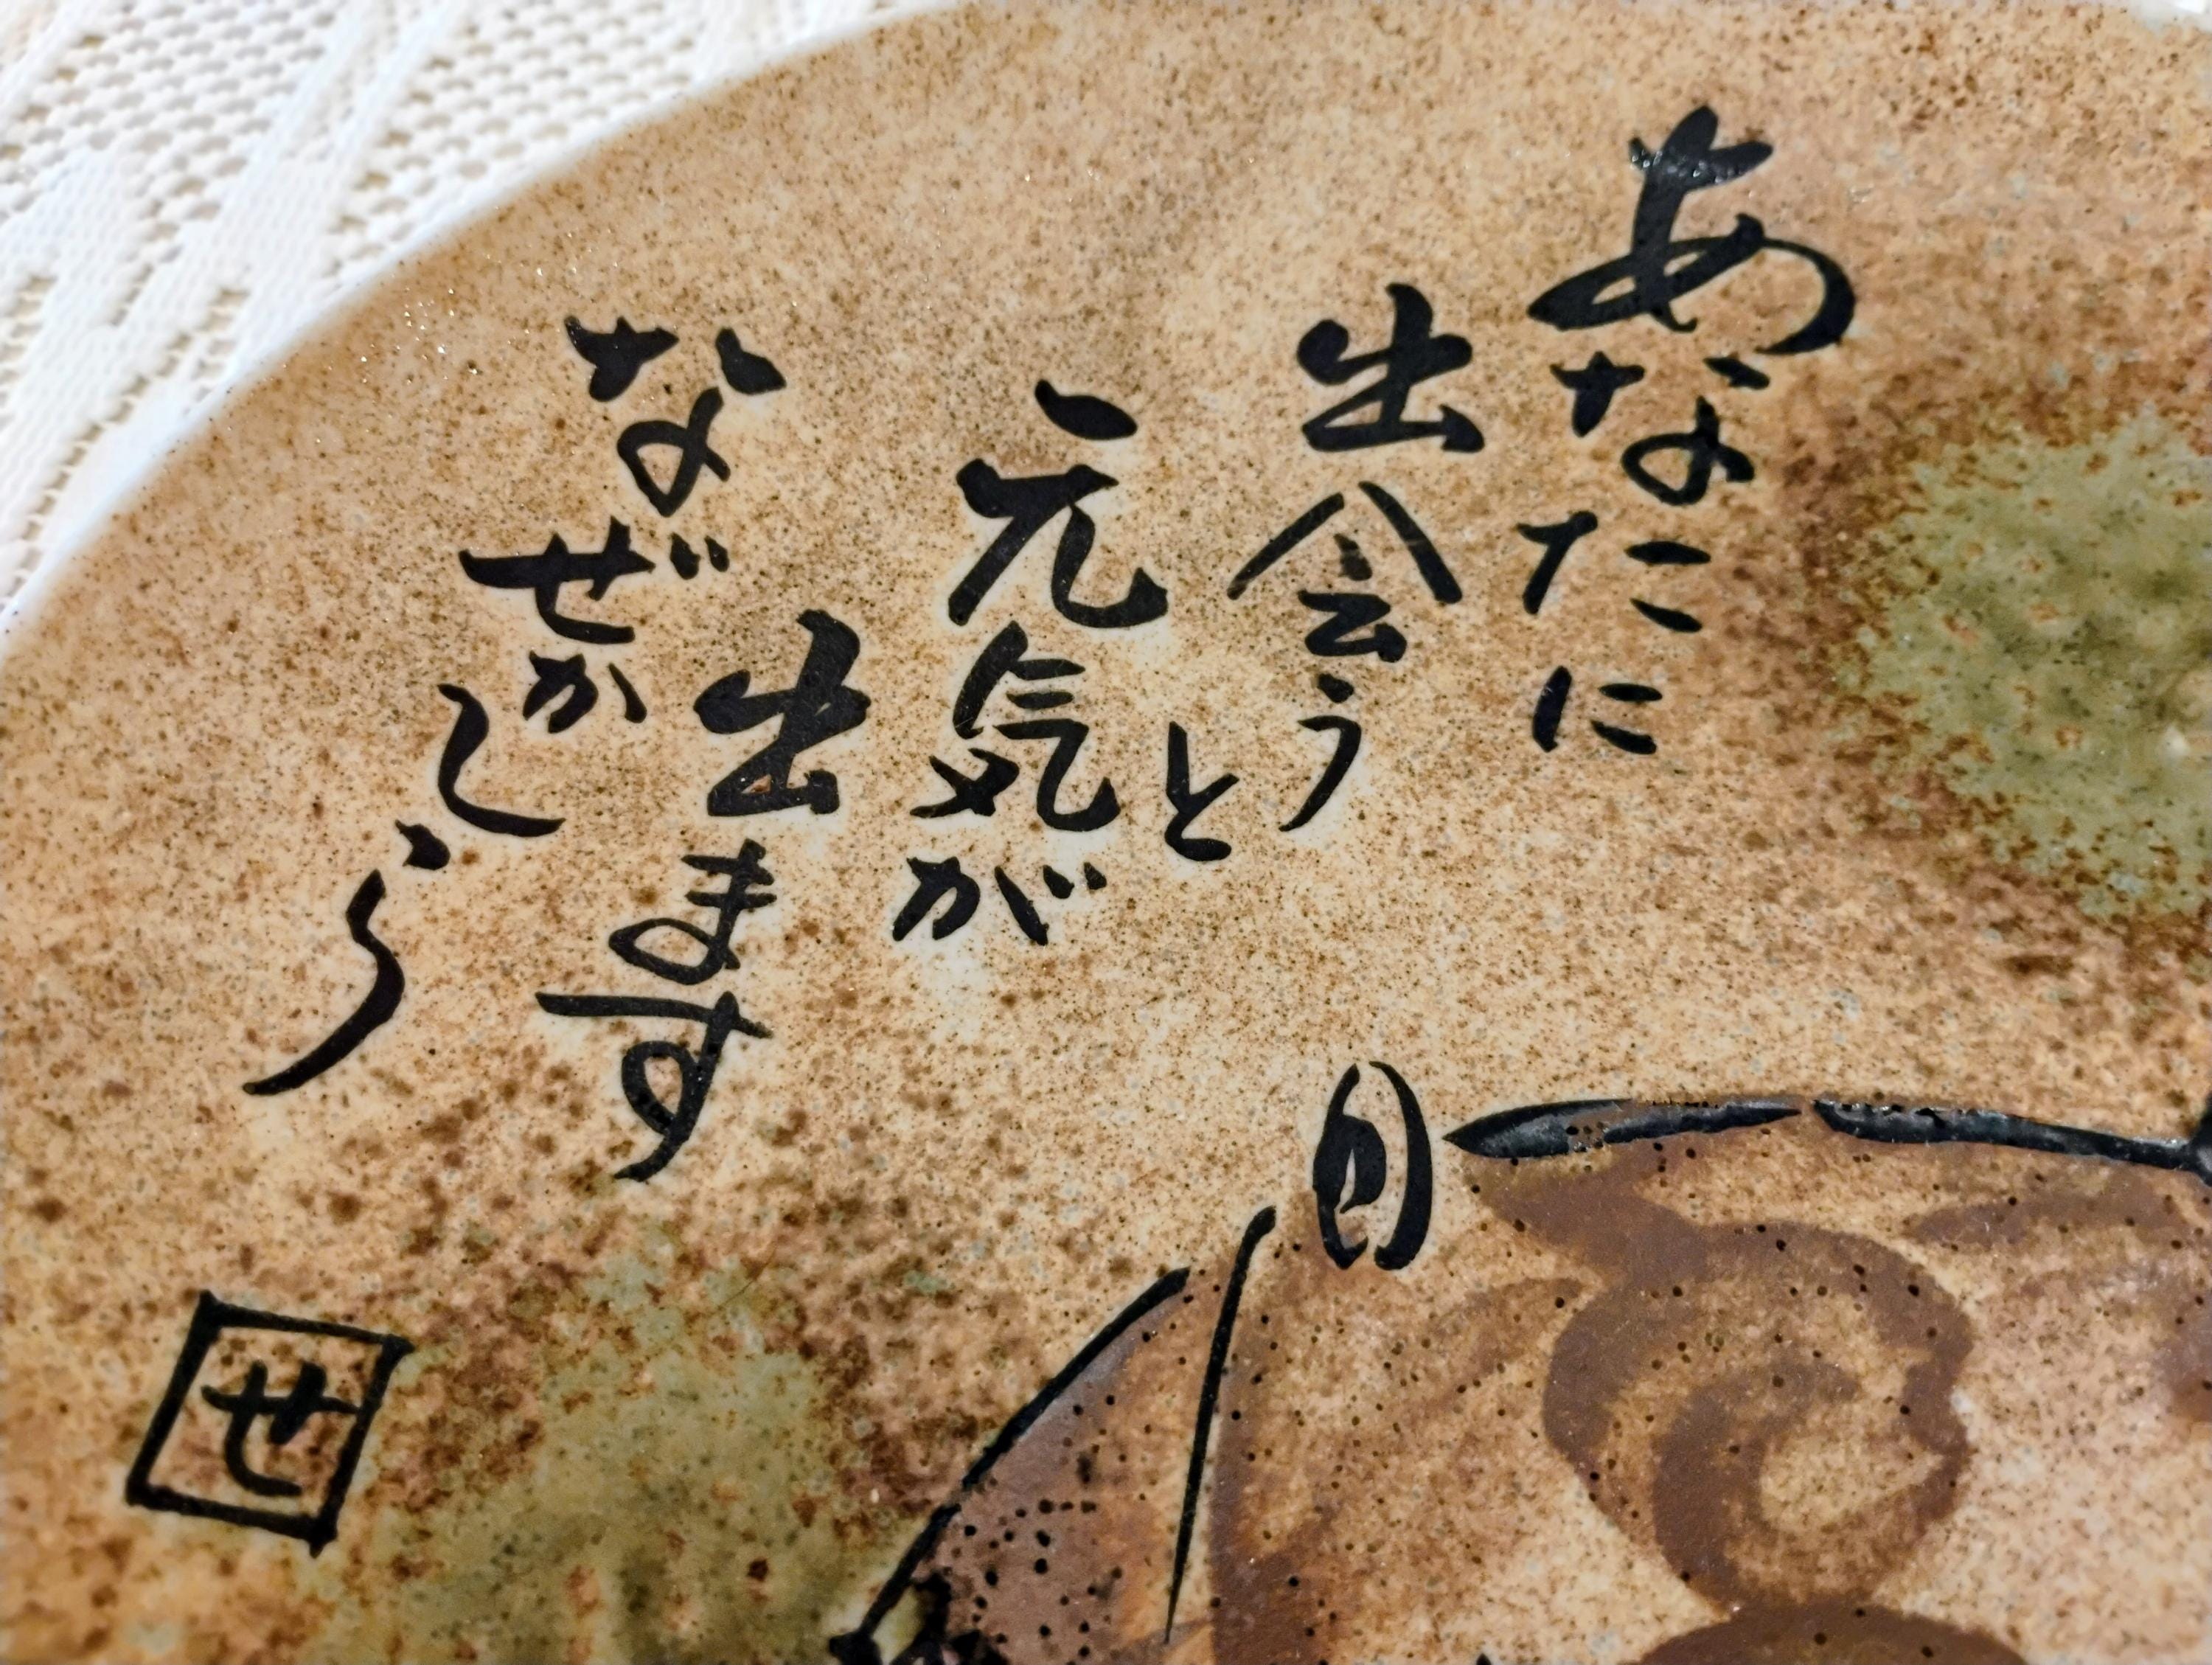 あなたに
出会うと
元気が
出ます
なぜかしら
せ